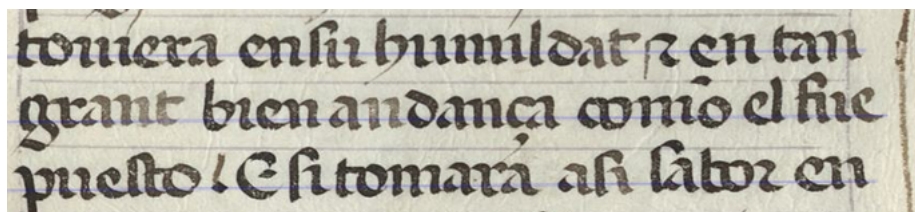 touiera en su humildat ⁊ en tan
grant bien andança como el fue
puesto / E si tomara asi sabor en